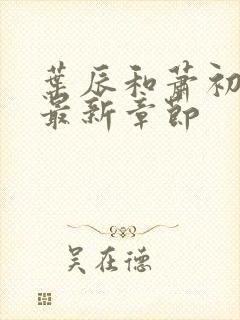 葉辰和蕭初
最新章節
吴在德